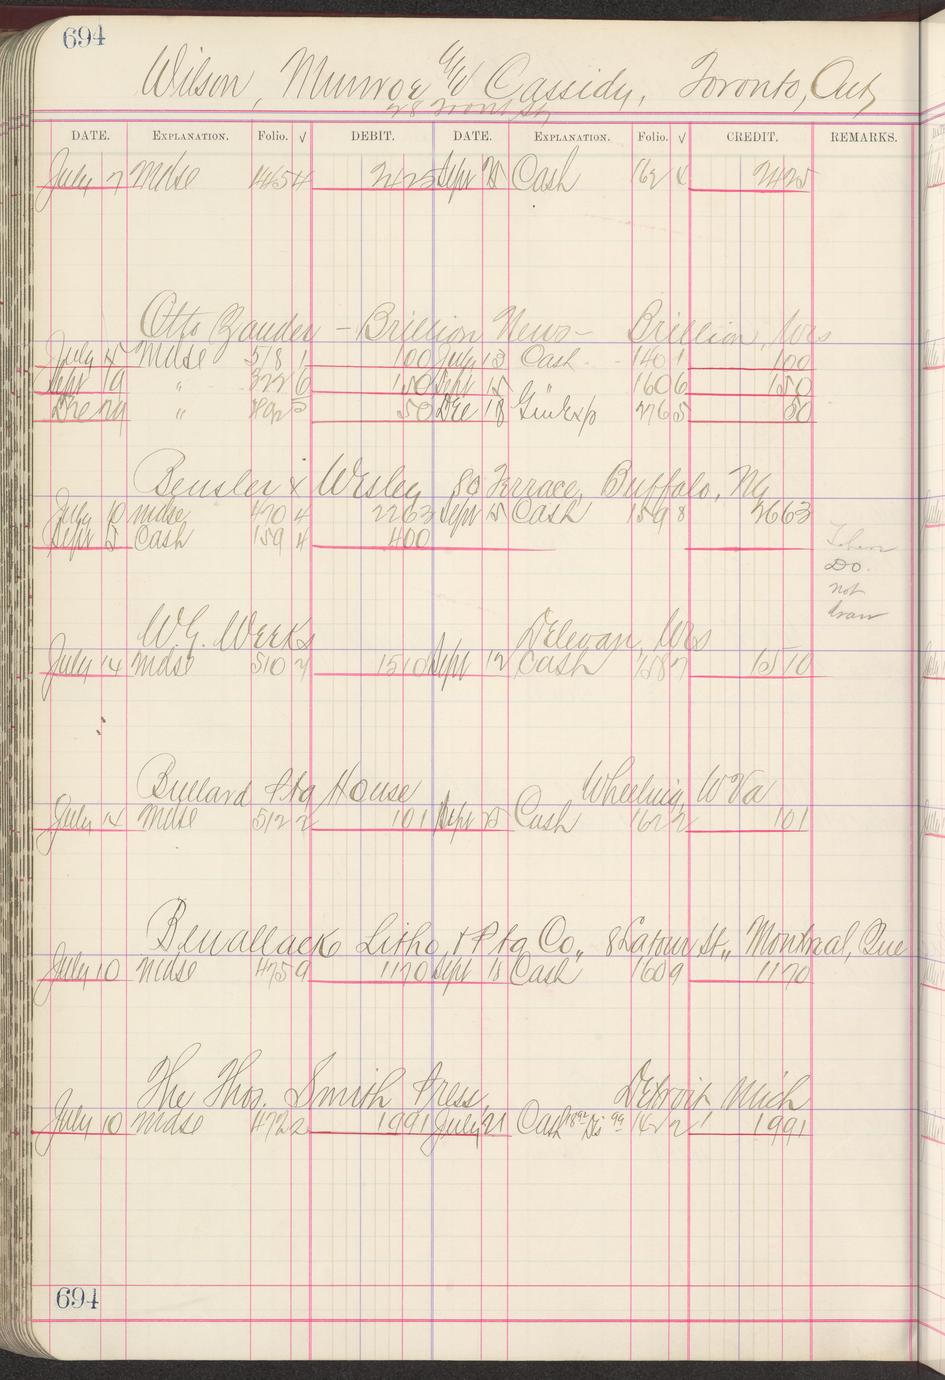 694
Wilson, Munroe & Cassidy, Toronto, Ont
28 Front St
DATE. EXPLANATION. Folio. √ DEBIT. DATE. EXPLANATION. Folio. √ CREDIT. REMARKS.
July 7 Mdse 445 4 2425 Sept 25 Cash 162 2425
Otto Zander - Brillion News - Brillion, Wis
July 15 Mdse 518 1 100 July 13 Cash 140 1 100
Sept 19 " 322 6 150 Sept 15 " 160 6 150
Dec 29 " 5 50 Dec 18 Gen Exp 276 5 50
Bensler & Wesley 80 Terrace, Buffalo, NY
July 10 Mdse 470 4 2263 Sept 15 Cash 159 8 2663
Sept 5 Cash 159 4 400
Do
not
draw
W.G. Weeks Delevan, Wis
July 14 Mdse 510 2 1510 Sept 12 Cash 158 7 1510
Bullard Ptg House Wheeling, W Va
July 14 Mdse 512 2 101 Sept 25 Cash 162 2 101
Benallack Litho. & Ptg Co., 8 Latour St., Montreal, Que
July 10 Mdse 475 9 1170 Sept 18 Cash 160 9 1170
The Thos. Smith Press, Detroit Mich
July 10 Mdse 472 2 1991 July 21 Cash 18 92 Dis 99 142 2 1991
694